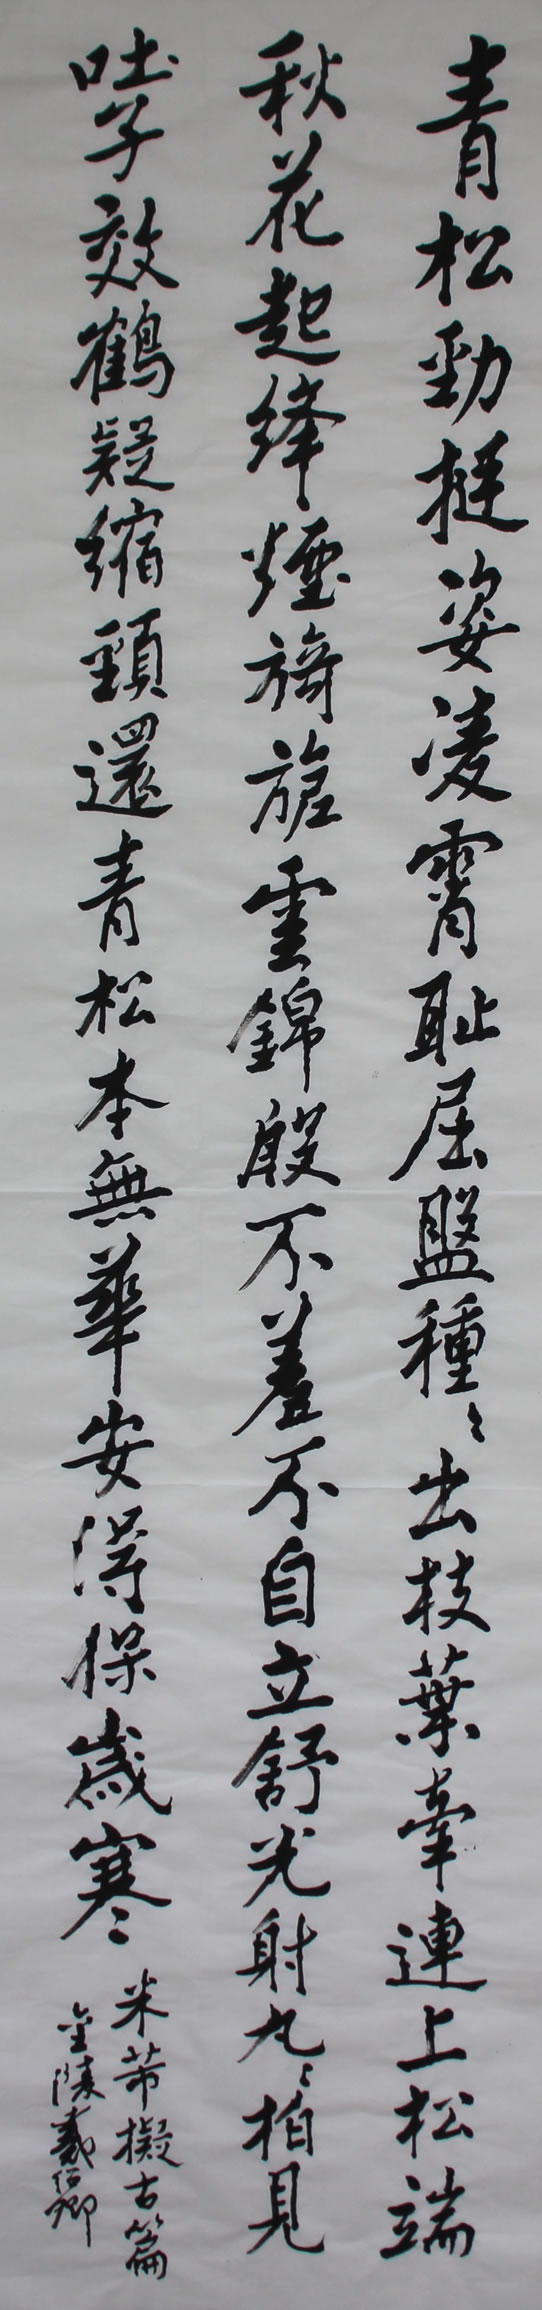 青松勁挺姿凌霄耻屈盤種〻出枝葉牽連上松端
秋花起絳煙旖旎雲錦殷不羞不自立舒光射丸〻柏見
吐子效鶴疑縮頸還青松本無華安得保歲寒
米芾擬古篇
金陵